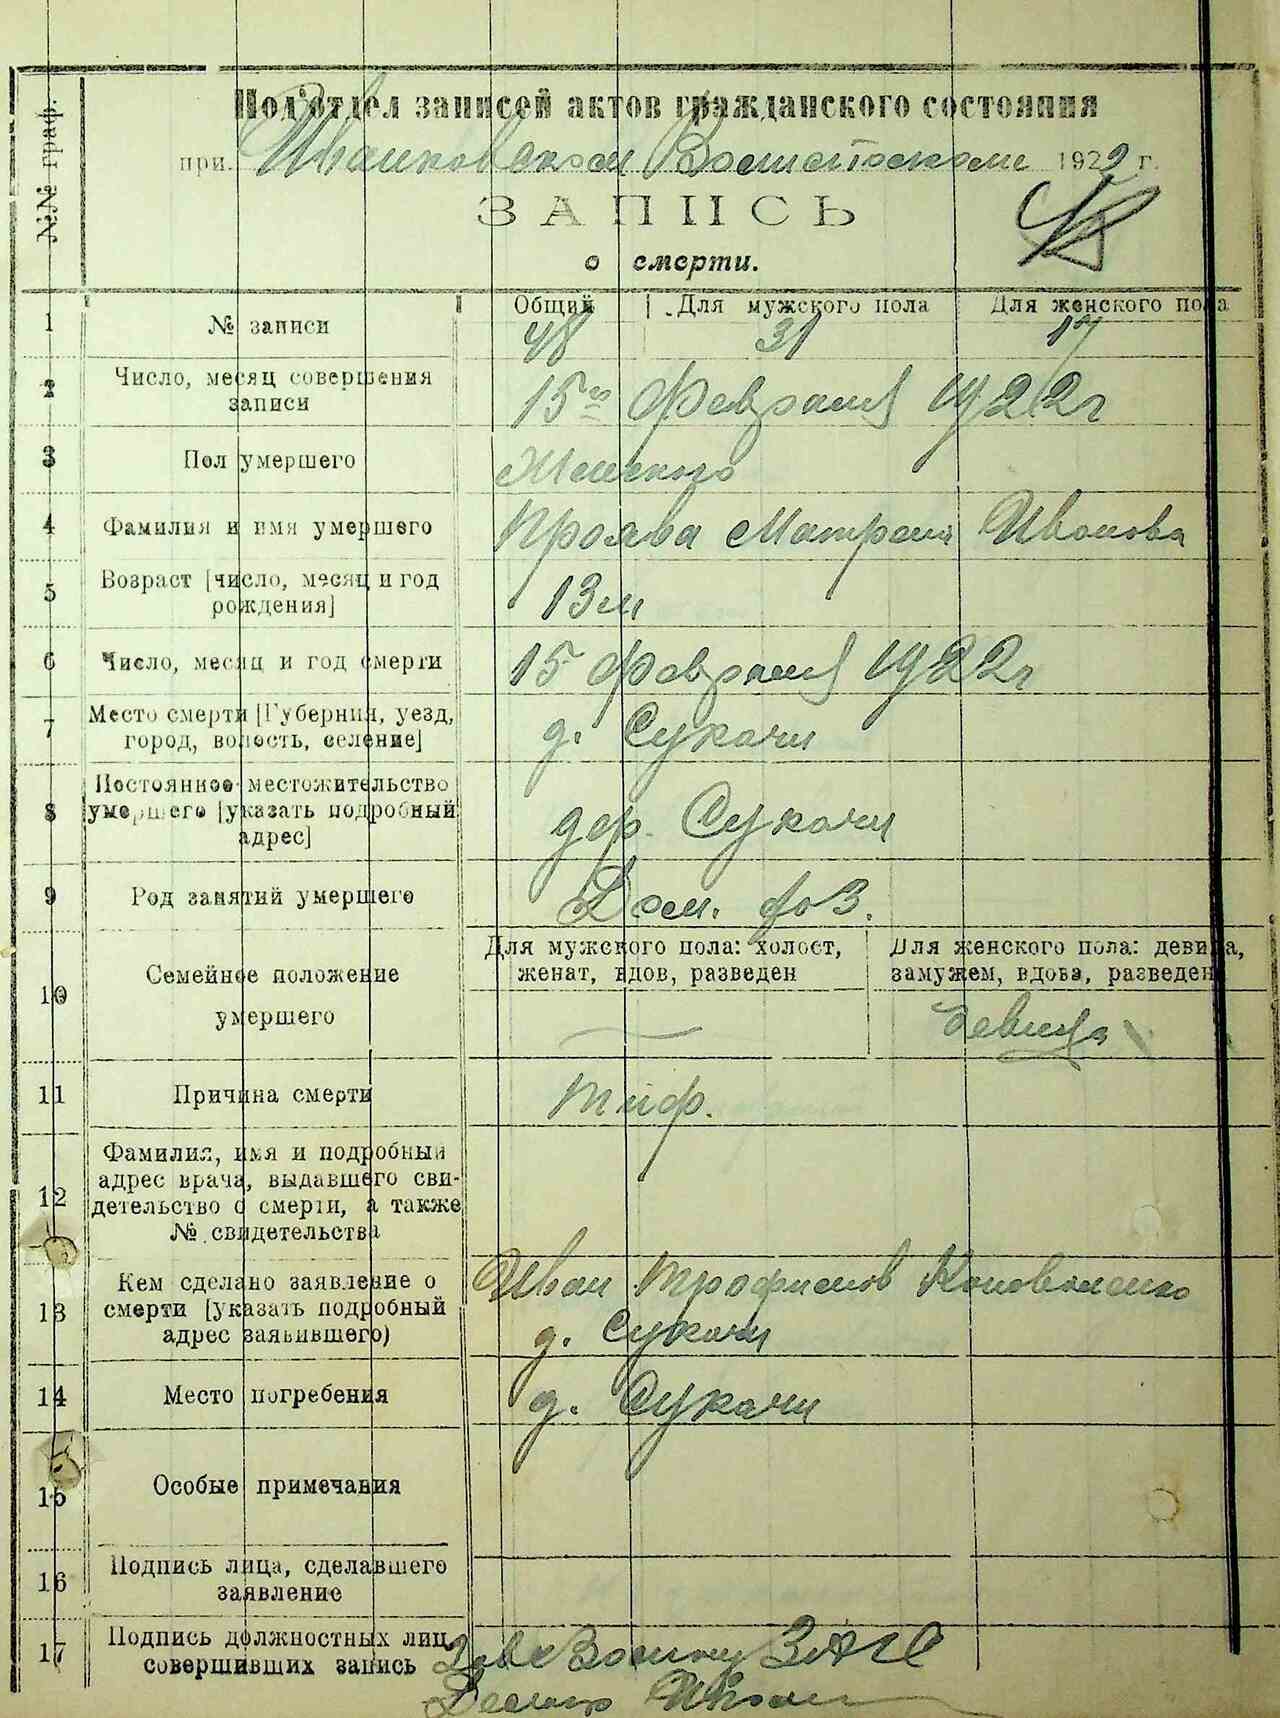 №№ граф.
Подотдел записей актов гражданского состояния
при Иванковском 1922 г.
ЗАПИСЬ
о смерти.
48
1 № записи Общий Для мужского пола Для женского пола
48 31 17
2 Число, месяц совершения записи
15го Февраля 1922 г
3 Пол умершего
Женского
4 Фамилия и имя умершего
Матрена Иванова
5 Возраст [число, месяц и год рождения]
13
6 Число, месяц и год смерти
15 Февраля 1922 г
7 Место смерти [Губерния, уезд, город, волость, селение]
д. Сукачи
8 Постоянное местожительство умершего [указать подробный адрес]
дер. Сукачи
9 Род занятий умершего
Дом. хоз.
10 Семейное положение умершего
Для мужского пола: холост, женат, вдов, разведен
Для женского пола: девица, замужем, вдова, разведен
девица
11 Причина смерти
Тиф.
12 Фамилия, имя и подробный адрес врача, выдавшего свидетельство о смерти, а также № свидетельства
13 Кем сделано заявление о смерти [указать подробный адрес заявившего)
Иван Трофимов Коноваленко
д. Сукачи
14 Место погребения
д. Сукачи
15 Особые примечания
16 Подпись лица, сделавшего заявление
17 Подпись должностных лиц, совершивших запись
ЗАГС